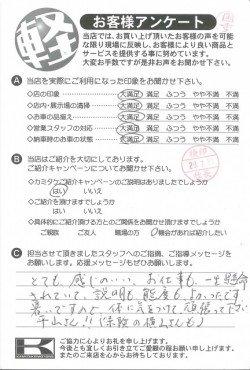 軽
お客様アンケート
当店では、お買い上げ頂いたお客様の声を可能
な限り現場に反映し、お客様により良い商品と
サービスを提供する事に努めています。
大変お手数ですが是非お声をお聞かせ下さい。
A 当店を実際にご利用になった印象をお聞かせ下さい。
◇店の印象 大満足 満足 ふつう やや不満 不満
◇店内・展示場の清掃 大満足 満足 ふつう やや不満 不満
◇お車の品揃え 大満足 満足 ふつう やや不満 不満
◇営業スタッフの対応 大満足 満足 ふつう やや不満 不満
◇納車時のお車の状態 大満足 満足 ふつう やや不満 不満
B 当店はご紹介を大切にしております。
ご紹介キャンペーンについてお聞かせ下さい。
◇カミタケご紹介キャンペーンのご説明はありましたでしょうか
はい いいえ
◇ご紹介を頂けますでしょうか
はい いいえ
◇具体的にご紹介頂ける方とのご関係をお聞かせ頂けますでしょうか
ご親族 ご友人 職場の方 機会があれば紹介したい
C 担当させて頂きましたスタッフへのご指摘、ご指導メッセージを
お願いします。応援メッセージもぜひお願いします。
とても感じのいい、お仕事も一生懸命
されていて、説明も態度もよかったです。
暑いですので体に気をつけて頑張って下さい
ご協力に心よりお礼を申し上げます。
今後とも宜しくお引き立てご愛顧の程お願い申し上げます。
またのご来店を心からお待ちしております。